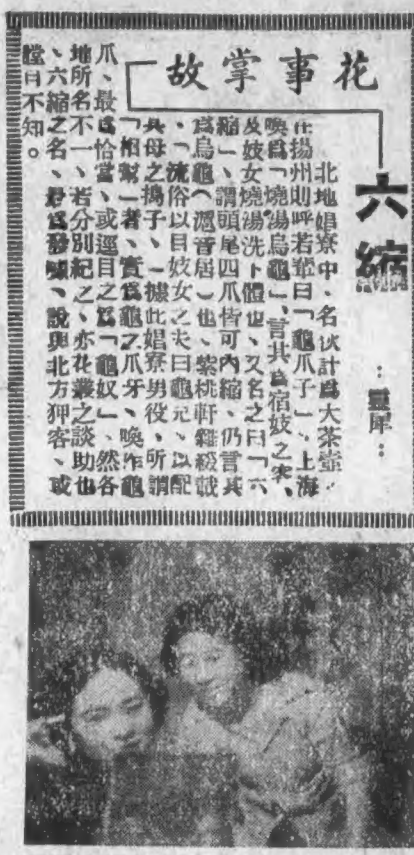 花事掌故
六縮
：靈犀：
北地娼寮中、名伙計爲大茶壺、
在揚州則呼若輩曰「龜爪子」、上海
喚爲「燒湯烏龜」、言其爲宿妓之夫、
及妓女燒湯洗下體也、又名之曰「六
縮」、謂頭尾四爪皆可內縮、仍言其
爲烏龜（滬音居）也、紫桃軒雜綴載
・「流俗以目妓女之夫曰龜兒、以配
其母之搗子、」據此娼寮男役、所謂
「相幫」者、實爲龜之爪牙、喚作龜
爪、最爲恰當、或逕目之爲「龜奴」、然各
地所名不一、若分別紀之、亦花叢之談助也
、六縮之名、爲發噱、說與北方狎客、或
瞠目不知。